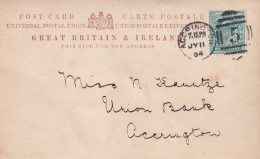 POST CARD CARTE POSTALE
UNIVERSAL POSTAL UNION UNION POSTALE UNIVERSELLE
GREAT BRITAIN & IRELAND
THIS SIDE FOR THE ADDRESS
ACCRINGTON
7.15PM
JY 11
04
Miss N.
Union Bank
Accrington